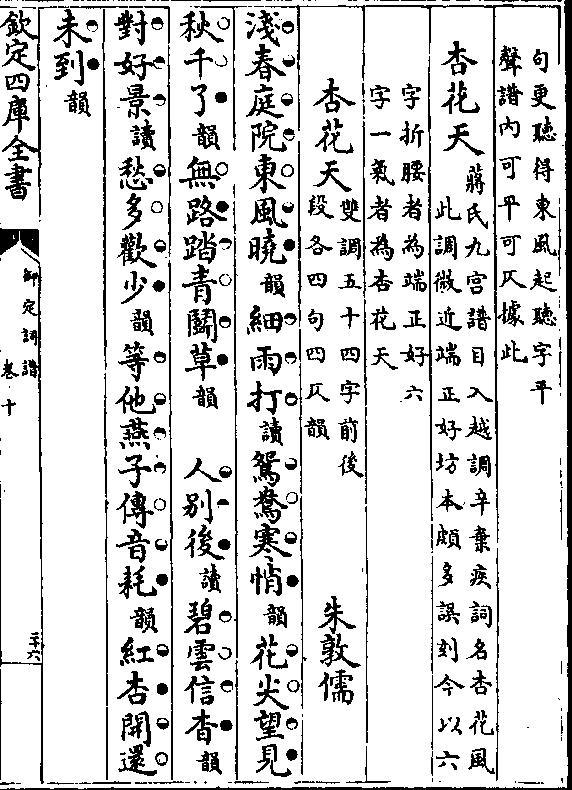 句更聽得東風起聽字平
聲譜內可平可仄據此
杏花天 蔣氏九宮譜目入越調辛棄疾詞名杏花風
此調微近端正好坊本頗多誤刻今以六
字折腰者為端正好六
字一氣者為杏花天
杏花天 雙調五十四字前後
段各四句四仄韻 朱敦儒
淺春庭院東風曉韻細雨打讀鴛鴦寒悄韻花尖望見
秋千了韻無路踏青鬬草韻 人別後讀碧雲信杳韻
對好景讀愁多歡少韻等他燕子傳音耗韻紅杏開還
未到韻
欽定四庫全書
御定詞譜
卷十
二十六